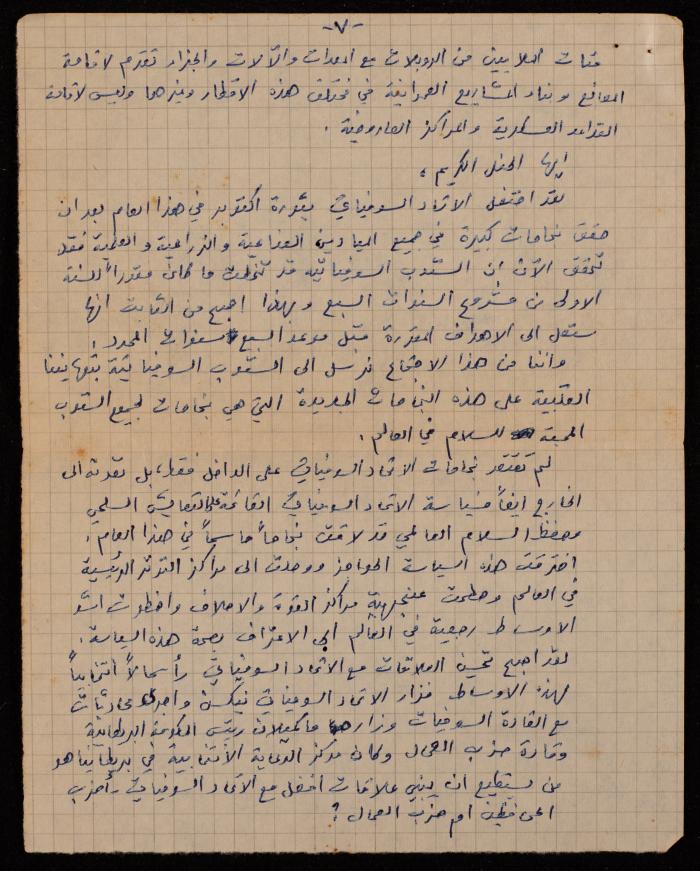 -٧-
مئات الملايين من الروبلات مع المعدات والآلات والخبراء تقدم لاقامة
المصانع وبناء المشاريع العمرانية في مختلف هذه الاقطار وغيرها وليس لاقامة
القواعد العسكرية والمراكز العدوانية .
ايها الحفل الكريم ،
لقد احتفل الاتحاد السوفياتي بثورة اكتوبر في هذا العام بعد ان
حقق نجاحات كبيرة في جميع الميادين الصناعية والزراعية والعلمية فقد
تحقق الآن ان الشعوب السوفياتية قد تخطت ما كان مقرراً للسنة
الاولى من مشروع السنوات السبع وبهذا اصبح من الثابت انها
ستصل الى الاهداف المقررة قبل موعد السبع سنوات المحدد .
واننا من هذا الاجتماع نرسل الى الشعوب السوفياتية بتهانينا
القلبية على هذه النجاحات الجديدة التي هي نجاحات لجميع الشعوب
المحبة للسلام في العالم .
لم تقتصر نجاحات الاتحاد السوفياتي على الداخل فقط ، بل تعدته الى
الخارج ايضاً فسياسة الاتحاد السوفياتي القائمة على التعايش السلمي
وحفظ السلام العالمي قد لاقت نجاحاً حاسماً في هذا العام .
اخترقت هذه السياسة الحواجز ووصلت الى مراكز التوتر الرئيسية
في العالم وحطمت عنجهية مراكز القوة والاحلاف واضطرت اشد
الاوساط رجعية في العالم الى الاعتراف بصحة هذه السياسة .
لقد اصبح تحسين العلاقات مع الاتحاد السوفياتي رأسمالاً انتخابياً
لهذه الاوساط فزار الاتحاد السوفياتي نيكسن واجرى محادثات
مع القادة السوفيات وزاره ماكميلان رئيس الحكومة البريطانية
وقادة حزب العمال وكان مركز الدعاية الانتخابية في بريطانيا هو
من يستطيع ان يبني علاقات افضل مع الاتحاد السوفياتي أحزب
المحافظين ام حزب العمال ؟